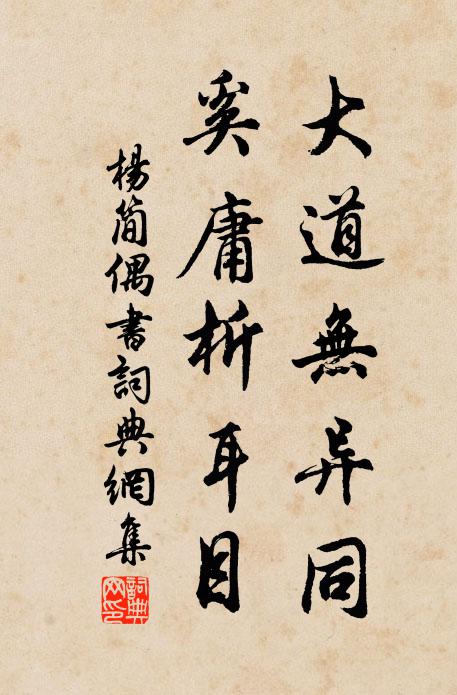 大道無异同
奚庸析耳目
楊简偶書詞典網集
詞典網印